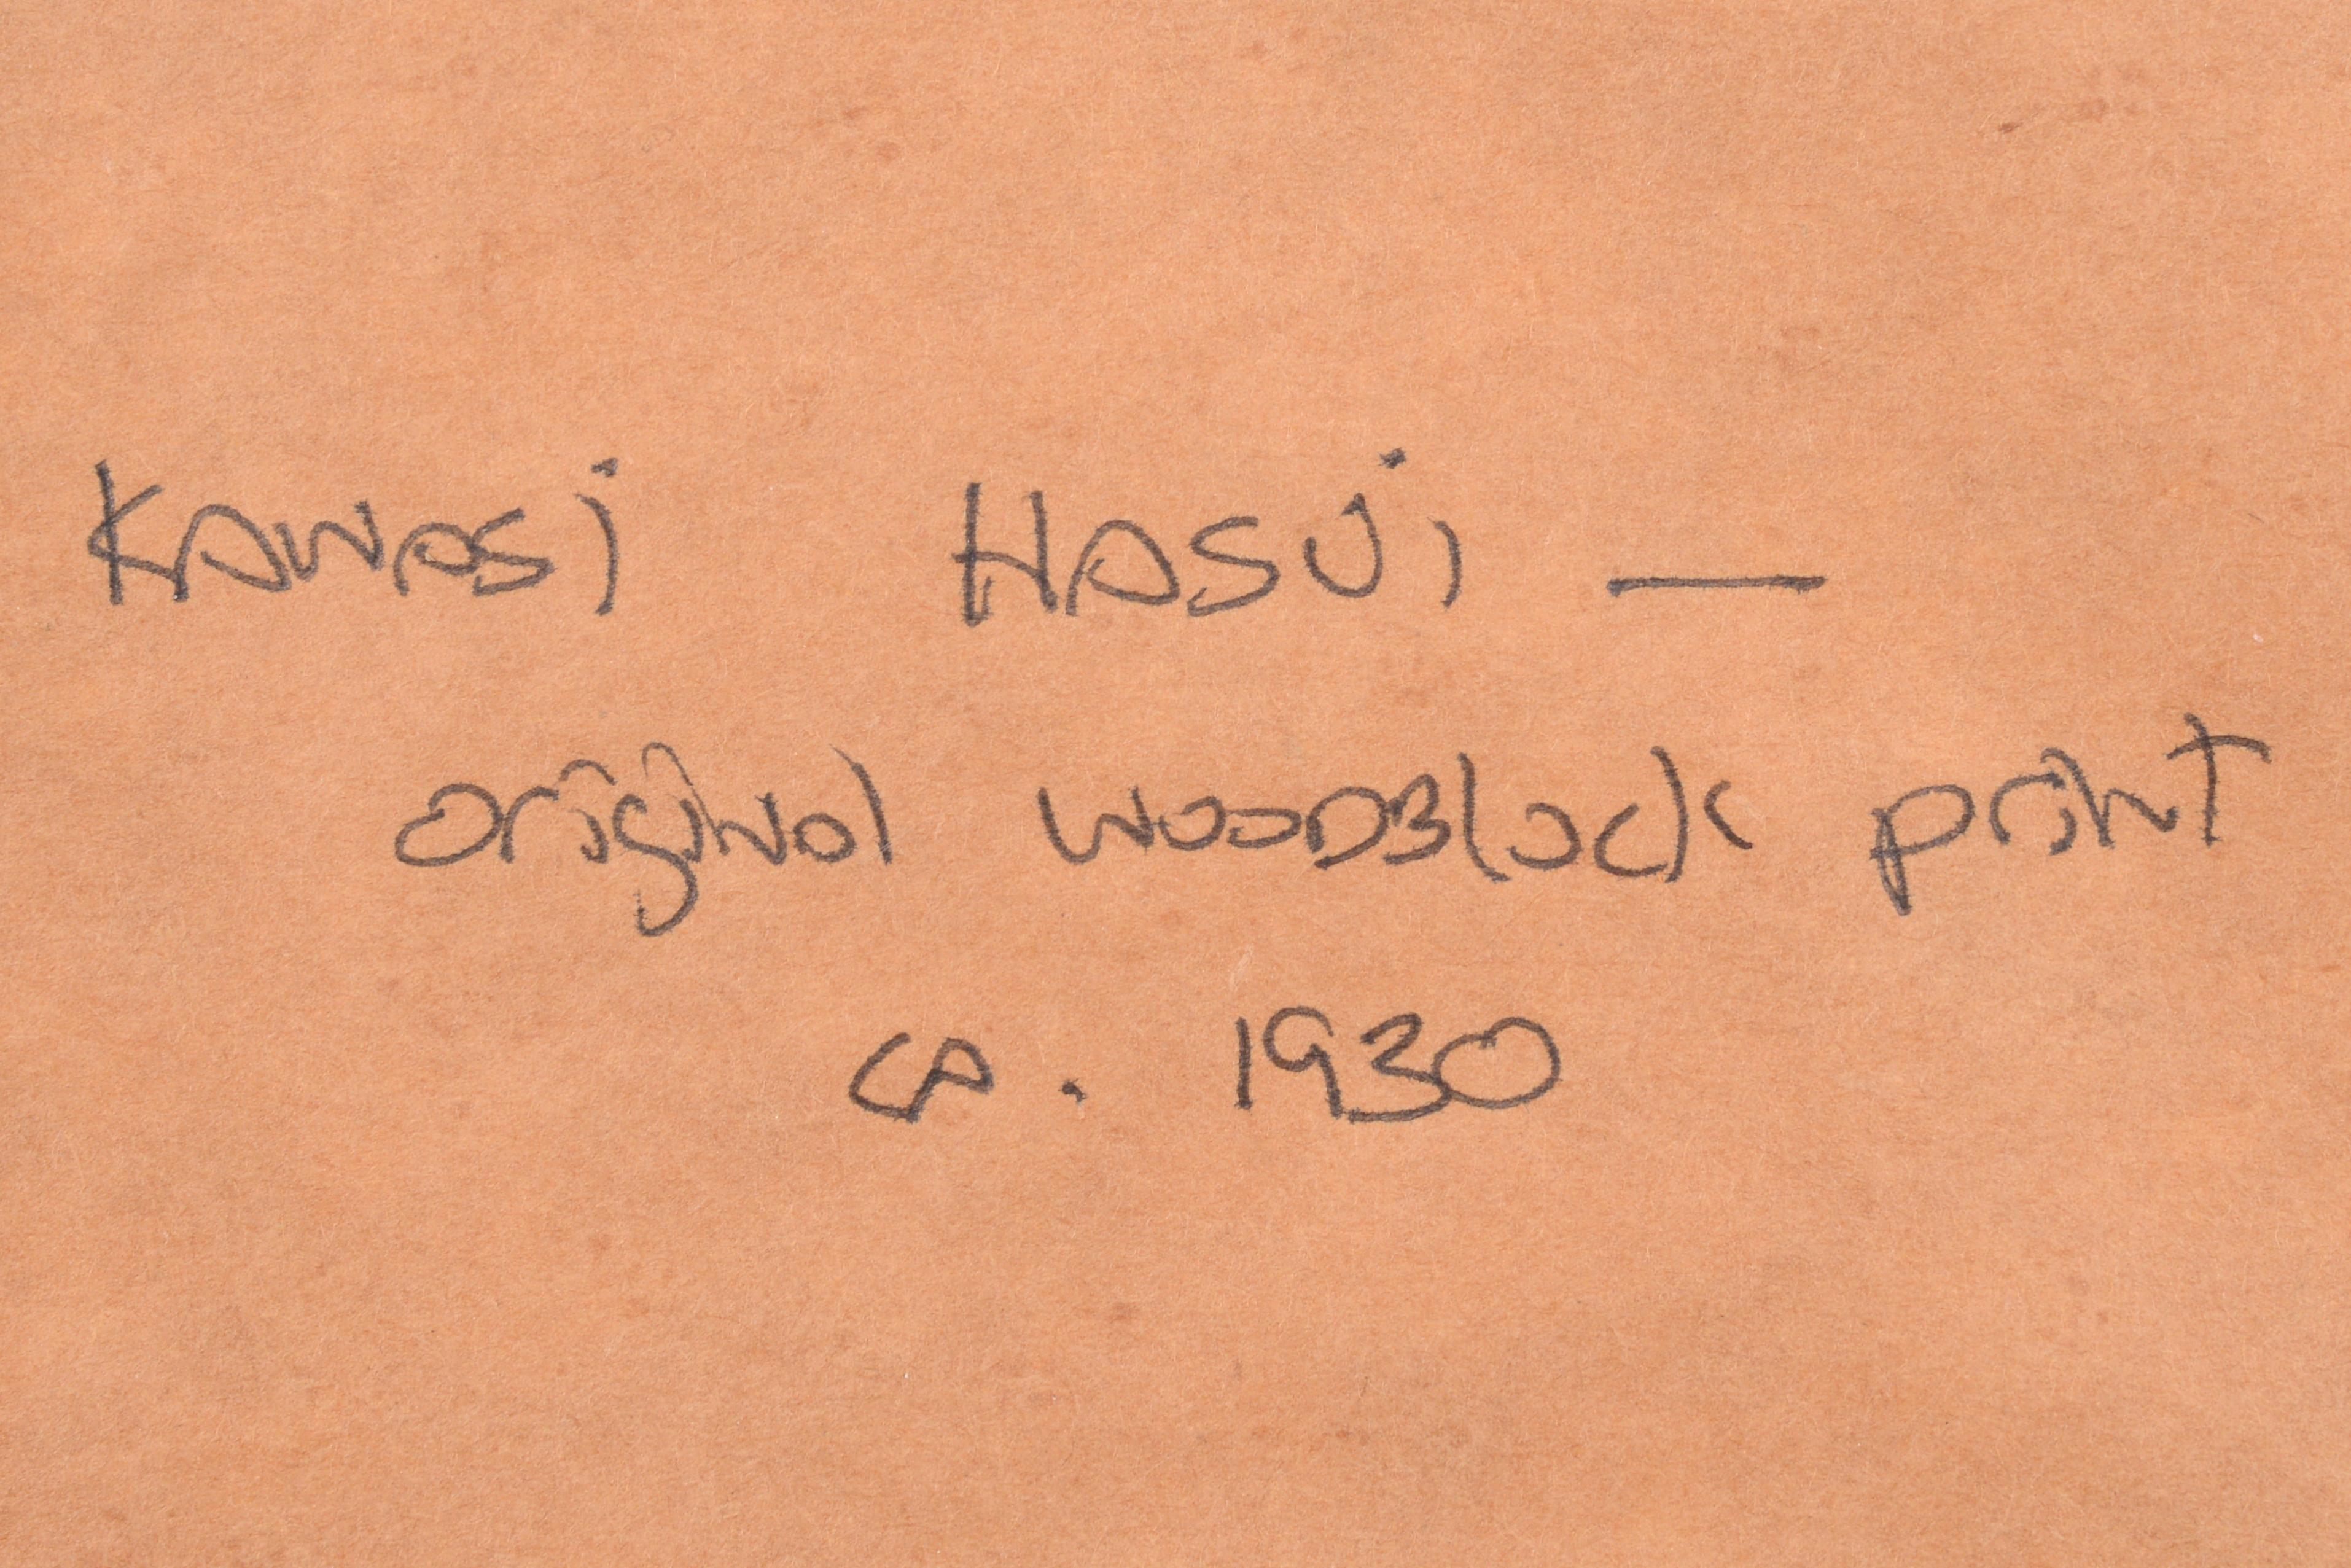 KAWASi HASUi —
original WOODBlock print
ca. 1930